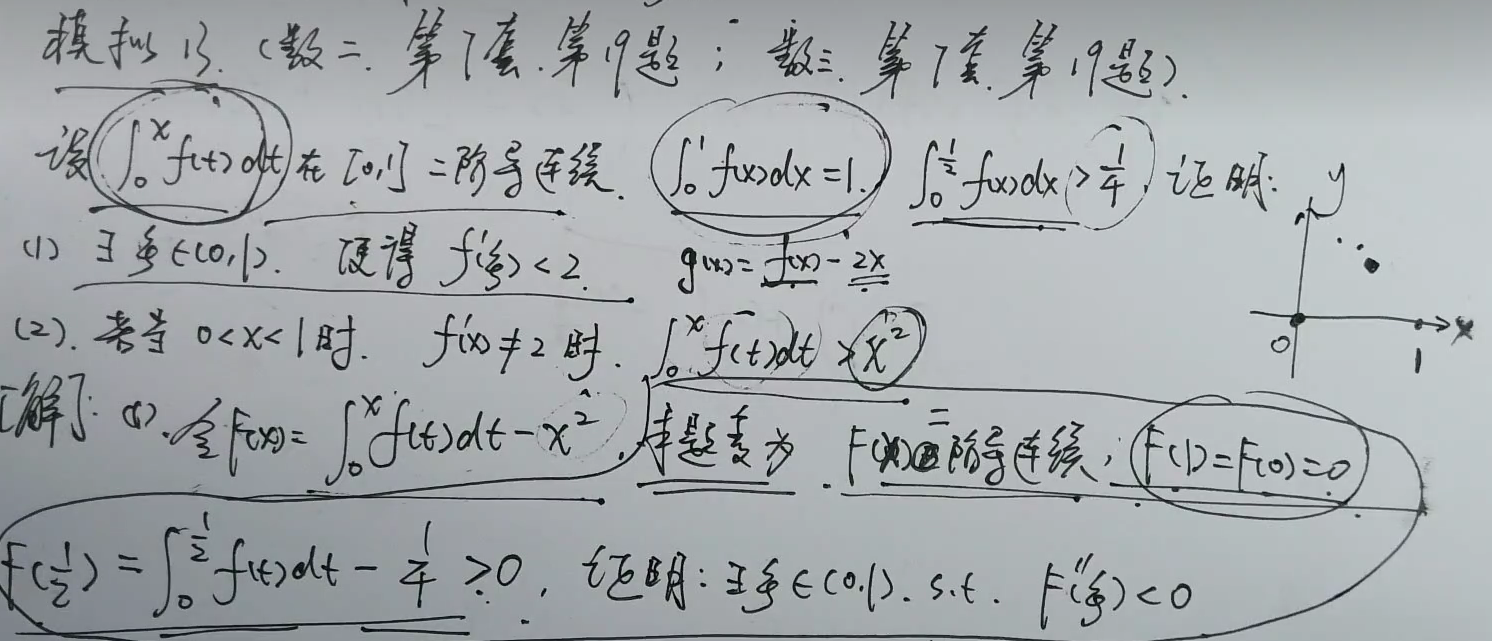 模拟13.(数二.第7套.第19题;数三.第7套.第19题).
设∫₀ˣf(t)dt在[0,1]二阶导连续. ∫₀¹f(x)dx=1. ∫₀^{1/2}f(x)dx>1/4. 证明: y
(1) ∃ξ∈(0,1). 使得 f'(ξ)<2. g(x)=f(x)-2x
(2). 若当 0<x<1时. f'(x)≠2时. ∫₀ˣf(t)dt>x² 0 1 x
[解]: (1).令F(x)=∫₀ˣf(t)dt-x². 本题变为 F(x)二阶导连续; F(1)=F(0)=0
F(1/2)=∫₀^{1/2}f(t)dt-1/4>0. 证明:∃ξ∈(0,1). s.t. F''(ξ)<0